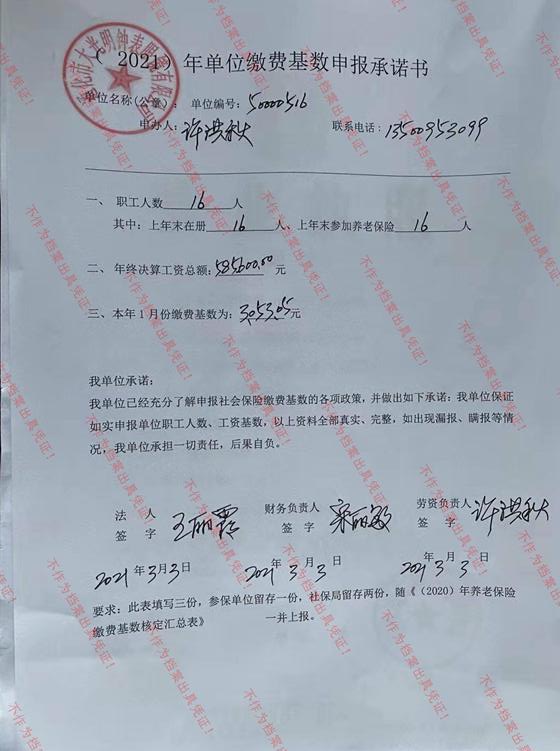 （ 2021 ）年单位缴费基数申报承诺书
单位名称(公章)： 单位编号：50000516
申办人：许洪秋 联系电话：13500953099
一、 职工人数 16 人
其中：上年末在册 16 人、上年末参加养老保险 16 人
二、年终决算工资总额：585600.00 元
三、本年 1 月份缴费基数为：3053.05元
我单位承诺：
我单位已经充分了解申报社会保险缴费基数的各项政策，并做出如下承诺：我单位保证
如实申报单位职工人数、工资基数，以上资料全部真实、完整，如出现漏报、瞒报等情
况，我单位承担一切责任，后果自负。
法 人 财务负责人 劳资负责人
签 字 王丽霞 签 字 宋丽敏 签 字 许洪秋
2021 年 3 月 3 日 2021 年 3 月 3 日 2021 年 3 月 3 日
要求：此表填写三份，参保单位留存一份，社保局留存两份，随《（2020）年养老保险
缴费基数核定汇总表》 一并上报。
不作为档案出具凭证！